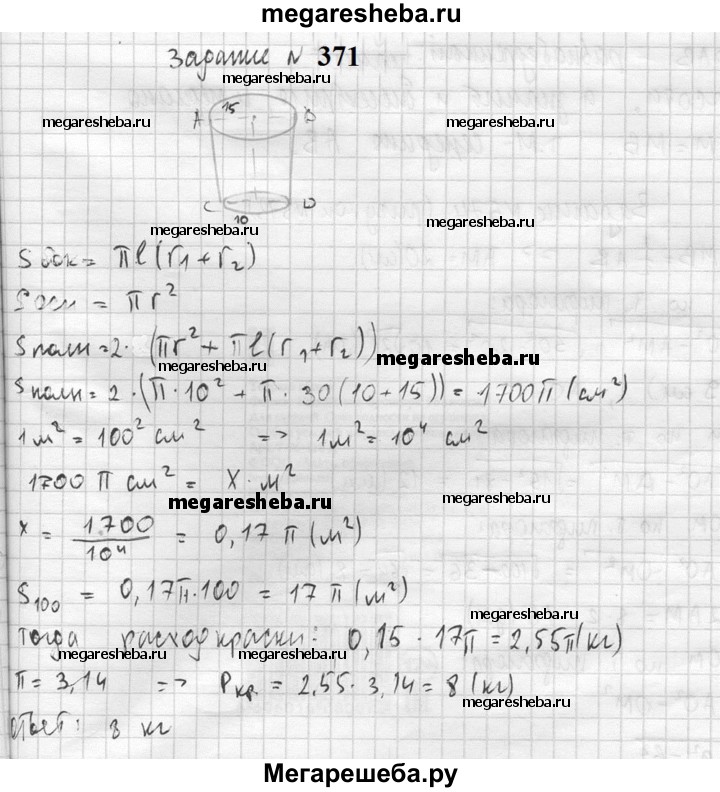 megaresheba.ru
Задание № 371
megaresheba.ru
15
megaresheba.ru
A B
megaresheba.ru
C D
10
megaresheba.ru
megaresheba.ru
S бок = πl(r₁+r₂)
S осн = πr²
S полн = 2·(πr²+πl(r₁+r₂))
megaresheba.ru
megaresheba.ru
S полн = 2·(π·10²+π·30(10+15)) = 1700π (см²)
1м² = 100² см² => 1м² = 10⁴ см²
1700 π см² = x·м²
megaresheba.ru
megaresheba.ru
x = 1700/10⁴ = 0,17 π (м²)
S₁₀₀ = 0,17π·100 = 17 π (м²)
megaresheba.ru
Тогда расход краски: 0,15·17π = 2,55π(кг)
megaresheba.ru
megaresheba.ru
π = 3,14 => Pкр. = 2,55·3,14 = 8 (кг)
Ответ: 8 кг
Мегарешеба.ру